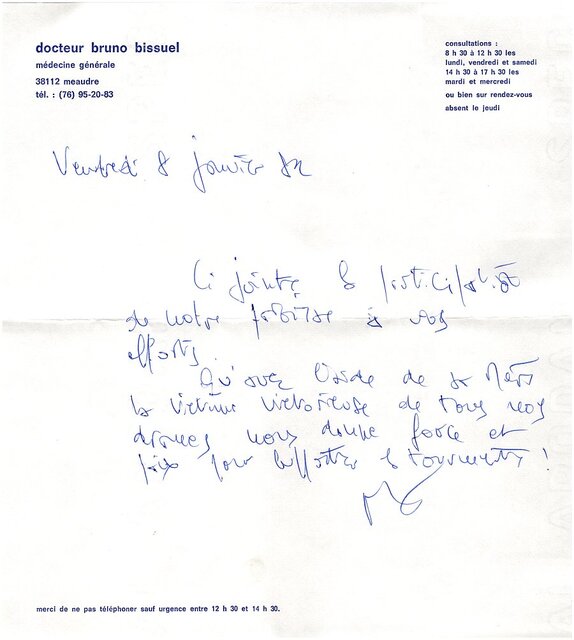 docteur bruno bissuel
médecine générale
38112 meaudre
tél. : (76) 95-20-83
consultations :
8 h 30 à 12 h 30 les
lundi, vendredi et samedi
14 h 30 à 17 h 30 les
mardi et mercredi
ou bien sur rendez-vous
absent le jeudi
Vendredi 8 janvier 82
Ci jointe la participation
de notre paroisse à vos
efforts.
Qu'avec l'aide de sa Mère
la victime victorieuse de tous nos
drames nous donne force et
paix pour supporter la tourmente !
merci de ne pas téléphoner sauf urgence entre 12 h 30 et 14 h 30.